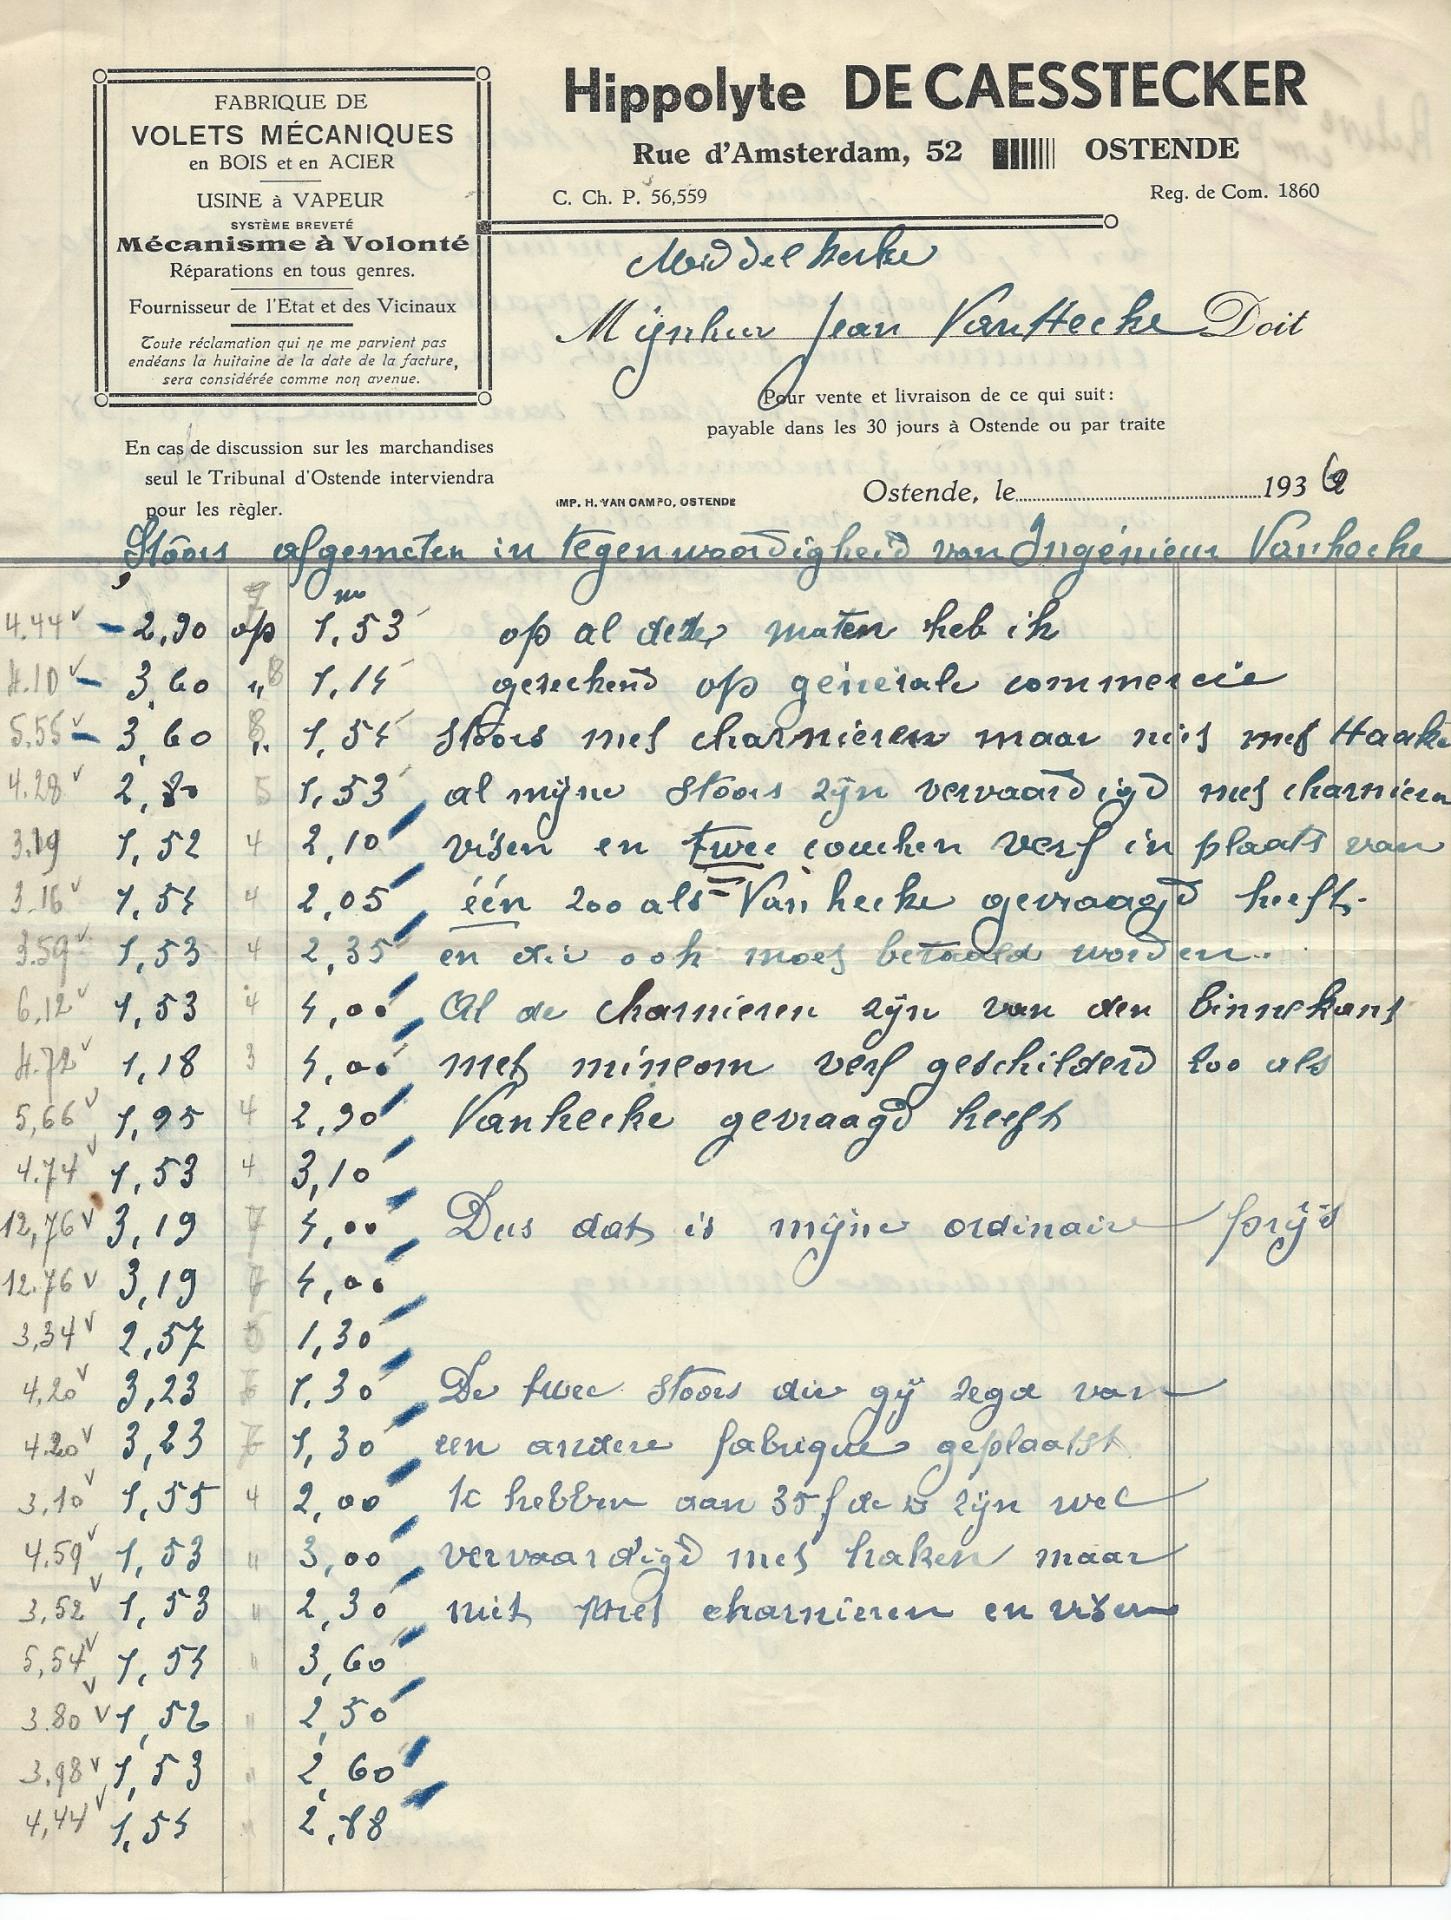 FABRIQUE DE
VOLETS MÉCANIQUES
en BOIS et en ACIER
USINE à VAPEUR
SYSTÈME BREVETÉ
Mécanisme à Volonté
Réparations en tous genres.
Fournisseur de l'Etat et des Vicinaux
Toute réclamation qui ne me parvient pas
endéans la huitaine de la date de la facture,
sera considérée comme non avenue.
En cas de discussion sur les marchandises
seul le Tribunal d'Ostende interviendra
pour les règler.
Hippolyte DE CAESSTECKER
Rue d'Amsterdam, 52 OSTENDE
C. Ch. P. 56,559 Reg. de Com. 1860
Middelkerke
Mijnheer Jean VanHecke Doit
Pour vente et livraison de ce qui suit:
payable dans les 30 jours à Ostende ou par traite
IMP. H. VAN CAMPO, OSTENDE
Ostende, le 193
Stoors afgemeten in tegenwoordigheid van Ingénieur Vanhecke
4.44 2,90 op 1,53 op al deze maten heb ik
4.10 3,60 " 8 1,14 gerekend op générale commercie
5.55 3,60 " 8 1,54 stoors met charnieren maar niet met Haake
4.28 2,80 5 1,53 al mijne stoors zijn vervaardigd met charnieren
3.19 1,52 4 2,10 visen en twee couchen verf in plaats van
3.16 1,54 4 2,05 één zoo als Vanhecke gevraagd heeft.
3.59 1,53 4 2,35 en die ook moet betaald worden.
6,12 1,53 4 4,00 Al de charnieren zijn van den binnekant
4.72 1,18 3 4,00 met mineom verf geschilderd zoo als
5,66 1,95 4 2,90 Vanhecke gevraagd heeft
4.74 1,53 4 3,10
12,76 3,19 7 4,00 Dus dat is mijne ordinaire prijs
12.76 3,19 7 4,00
3,34 2,57 5 1,30
4,20 3,23 7 1,30 De twee stoors die gij zegd van
4.20 3,23 7 1,30 een andere fabrique geplaatst
3,10 1,55 4 2,00 te hebben aan 35 f de zijn wel
4.59 1,53 " 3,00 vervaardigd met haken maar
3,52 1,53 " 2,30 niet met charnieren en visen
5,54 1,54 " 3,60
3.80 1,52 " 2,50
3.98 1,53 " 2,60
4,44 1,54 " 2,88